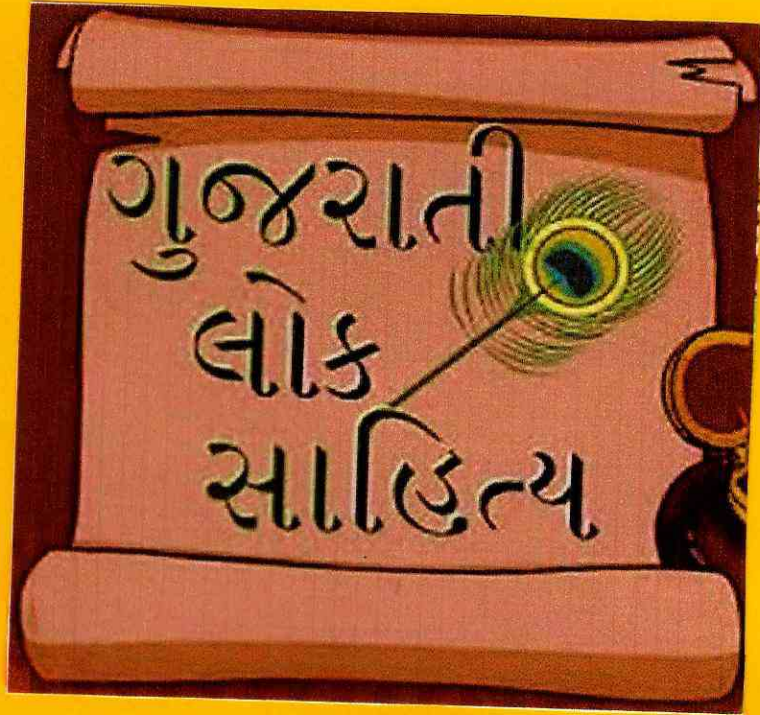 ગુજરાતી
લોક
સાહિત્ય